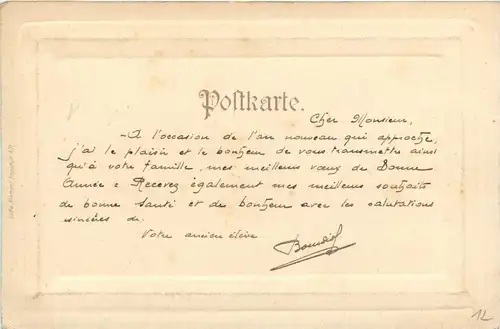 Postkarte.
Cher Monsieur,
-A l'occasion de l'an nouveau qui approche,
j'ai le plaisir et le bonheur de vous transmettre ainsi
qu'à votre famille, mes meilleurs vœux de Bonne
Année : Recevez également mes meilleurs souhaits
de bonne santé et de bonheur avec les salutations
sincères de.
Votre ancien élève
12